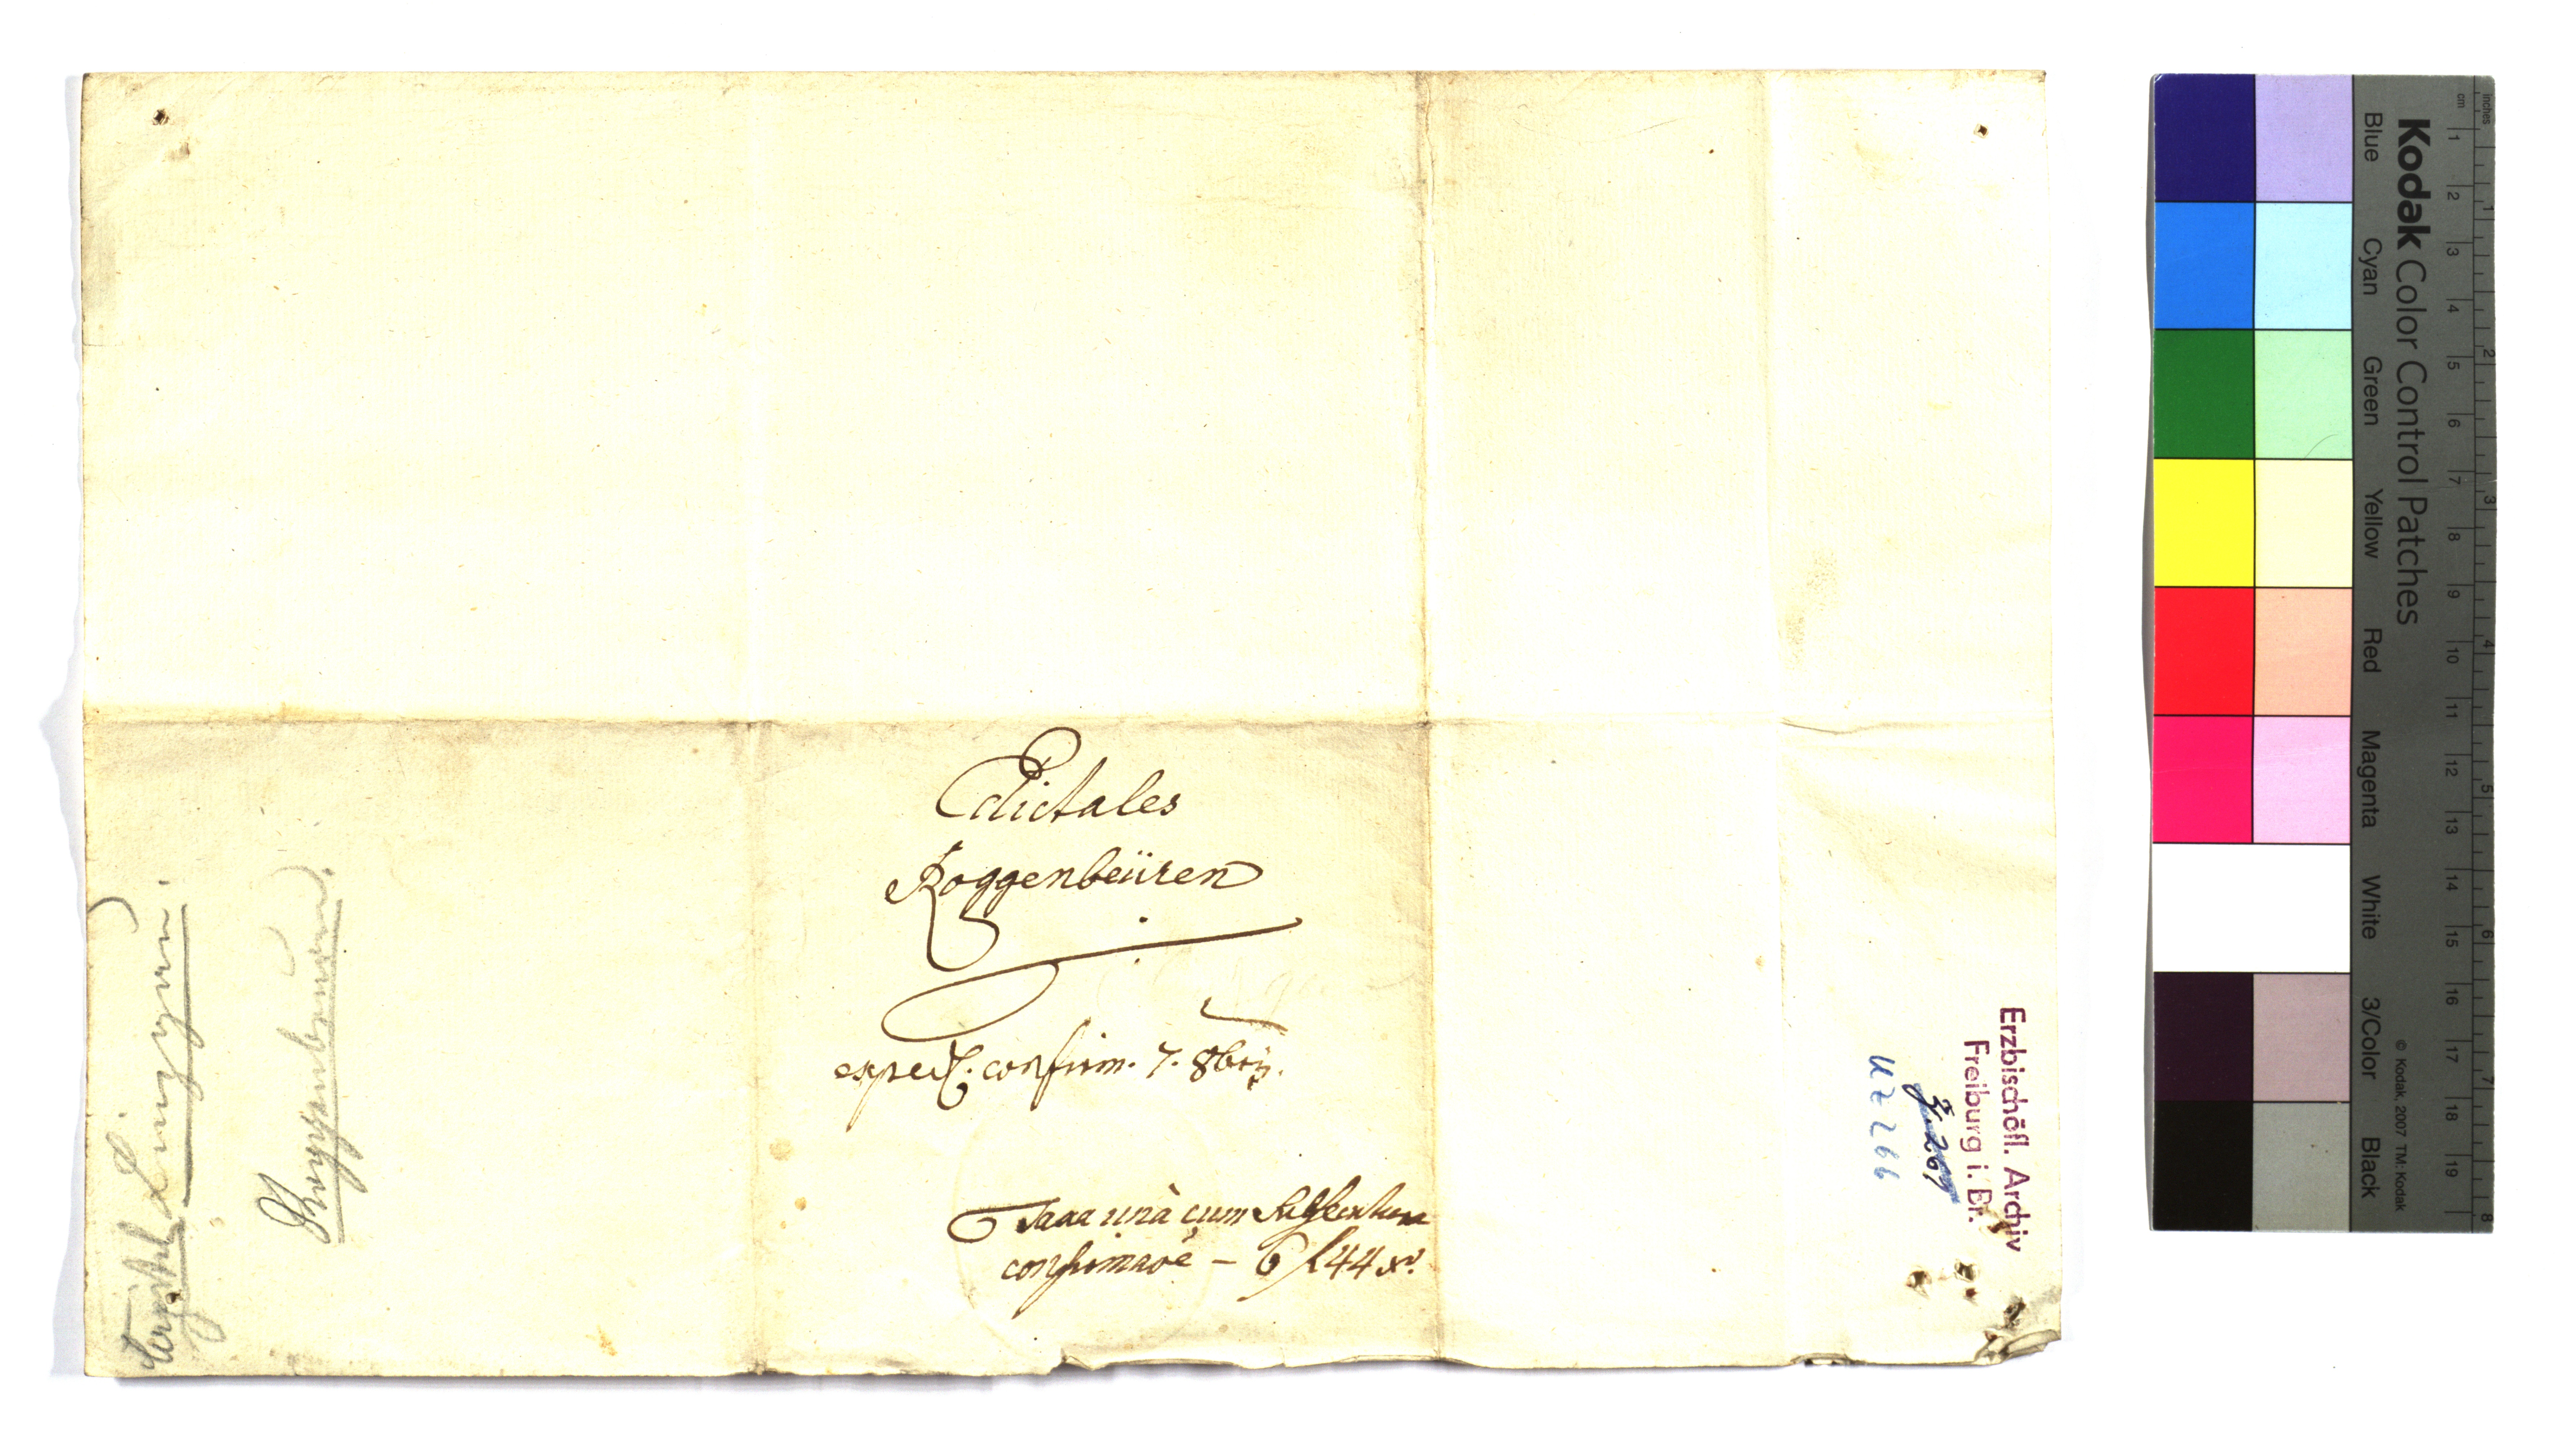 Edictales
Roggenbeüren
exped. confirm. 7. 8bris.
Taxa unà cum
confirmaõe - 6 f 44 xr.
Kapitel Linzgau.
Roggenbeuren.
Erzbischöfl. Archiv
Freiburg i. Br.
UZ 266
Kodak Color Control Patches
Blue Cyan Green Yellow Red Magenta White 3/Color Black
© Kodak, 2007 TM: Kodak
inches 1 2 3 4 5 6 7 8
cm 1 2 3 4 5 6 7 8 9 10 11 12 13 14 15 16 17 18 19